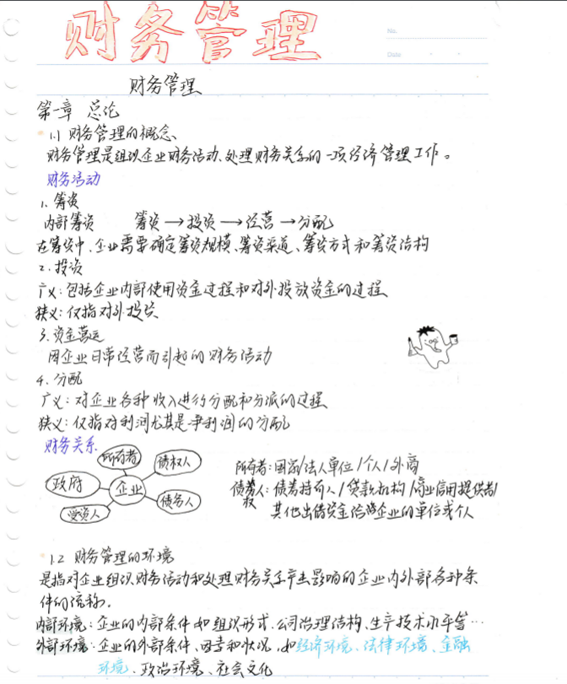 财务管理
No.
Date
财务管理
第一章 总论
1.1 财务管理的概念
财务管理是组织企业财务活动、处理财务关系的一项经济管理工作。
财务活动
1. 筹资
内部筹资 筹资→投资→经营→分配
在筹资中，企业需要确定筹资规模、筹资渠道、筹资方式和筹资结构
2. 投资
广义：包括企业内部使用资金过程和对外投放资金的过程
狭义：仅指对外投资
3. 资金营运
因企业日常经营而引起的财务活动
4. 分配
广义：对企业各种收入进行分配和分派的过程
狭义：仅指对利润尤其是净利润的分配
财务关系
所有者
债权人
政府
企业
债务人
受资人
所有者：国家/法人单位/个人/外商
债权人：债券持有人/贷款机构/商业信用提供者/
其他出借资金给企业的单位或个人
1.2 财务管理的环境
是指对企业组织财务活动和处理财务关系产生影响的企业内外部各种条
件的统称。
内部环境：企业的内部条件如组织形式、公司治理结构、生产技术水平等…
外部环境：企业的外部条件、因素和状况，如经济环境、法律环境、金融
环境、政治环境、社会文化